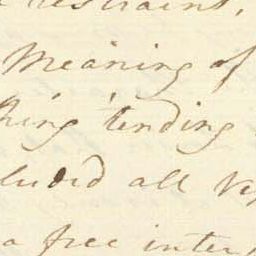 restraint,
Meaning of
thing tending
cluded all
a free inter